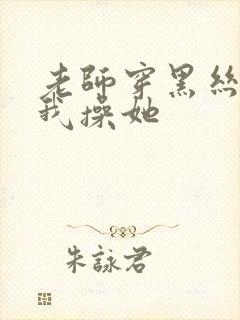 老師穿黑絲
我操她
朱詠君